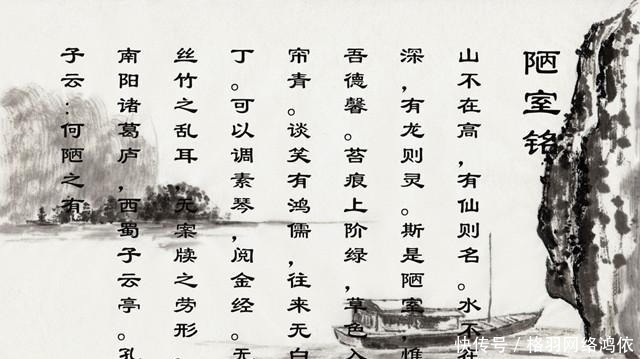 陋室铭
山不在高，有仙则名。水不在
深，有龙则灵。斯是陋室，惟
吾德馨。苔痕上阶绿，草色入
帘青。谈笑有鸿儒，往来无白
丁。可以调素琴，阅金经。无
丝竹之乱耳 无案牍之劳形，
南阳诸葛庐，西蜀子云亭。孔
子云：何陋之有
快传号／格羽网络鸿依